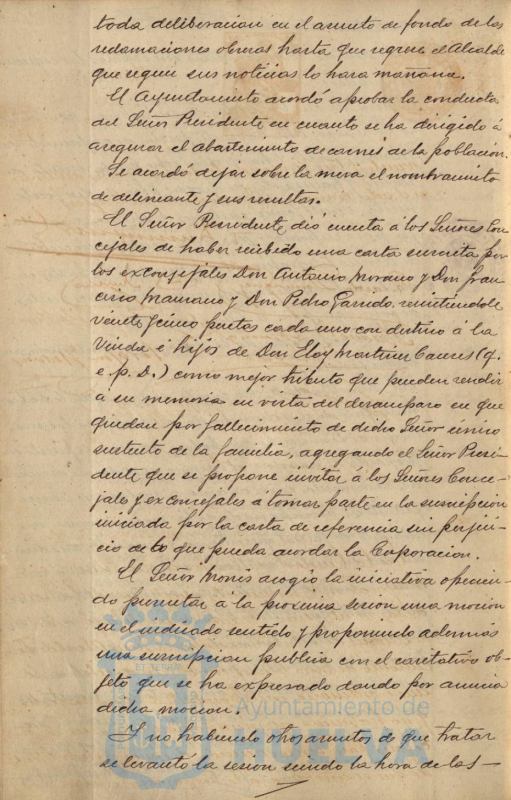 toda deliberacion en el asunto de fondo de las
reclamaciones obreras hasta que regrese el Alcalde
que segun sus noticias lo hara mañana.
El Ayuntamiento acordó aprobar la conducta
del Señor Presidente en cuanto se ha dirigido á
asegurar el abastecimiento de carnes de la poblacion.
Se acordó dejar sobre la mesa el nombramiento
de delineante y sus resultas.
El Señor Presidente dió cuenta á los Señores Con
cejales de haber recibido una carta suscrita por
los exconsejales Don Antonio Moreno y Don Fran
cisco Manzano y Don Pedro Garrido, remitiendole
veinte y cinco pesetas cada uno con destino á la
Viuda é hijos de Don Eloy Martinez (q.
e. p. D.) como mejor tributo que pueden rendir
á su memoria en vista del desamparo en que
quedan por fallecimiento de dicho Señor unico
sustento de la familia, agregando el Señor Presi-
dente que se propone invitar á los Señores Conce-
jales y exconcejales á tomar parte en la suscripcion
iniciada por la carta de referencia sin perjui-
cio de lo que pueda acordar la Corporacion.
El Señor Monis acogió la iniciativa ofrecien
do presentar á la proxima sesion una mocion
en el indicado sentido y proponiendo además
una suscripcion publica con el caritativo ob-
jeto que se ha expresado dando por anuncia
dicha mocion.
Ayuntamiento de
HUELVA
Y no habiendo otros asuntos de que tratar
se levantó la sesion siendo la hora de las —